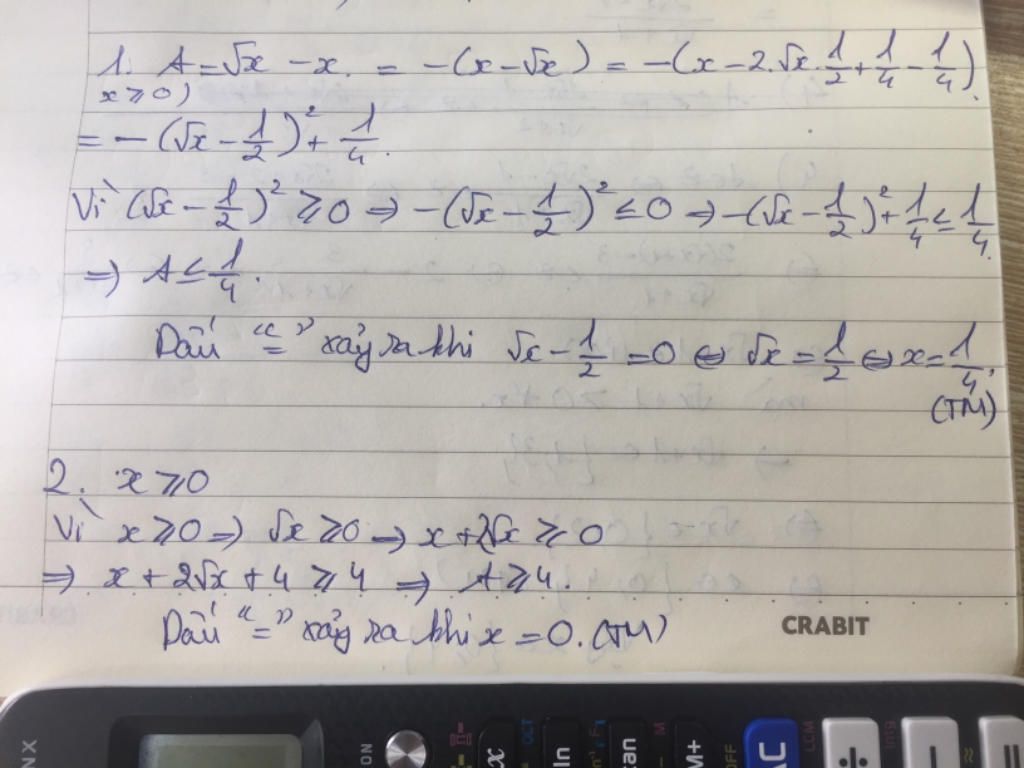 1. A = √x - x. = -(x - √x) = -(x - 2.√x.1/2 + 1/4 - 1/4).
x ≥ 0)
= -(√x - 1/2)² + 1/4.
Vì (√x - 1/2)² ≥ 0 ⇒ -(√x - 1/2)² ≤ 0 ⇒ -(√x - 1/2)² + 1/4 ≤ 1/4.
⇒ A ≤ 1/4.
Dấu "=" xảy ra khi √x - 1/2 = 0 ⇔ √x = 1/2 ⇔ x = 1/4,
(TM)
2. x ≥ 0
Vì x ≥ 0 ⇒ √x ≥ 0 ⇒ x + 2√x ≥ 0
⇒ x + 2√x + 4 ≥ 4 ⇒ A ≥ 4.
Dấu "=" xảy ra khi x = 0. (TM)
CRABIT
NX
ON
x
OCT
ln
F
tan
M
M+
OFF
AC
LCM
÷
Intg
−
≈
=